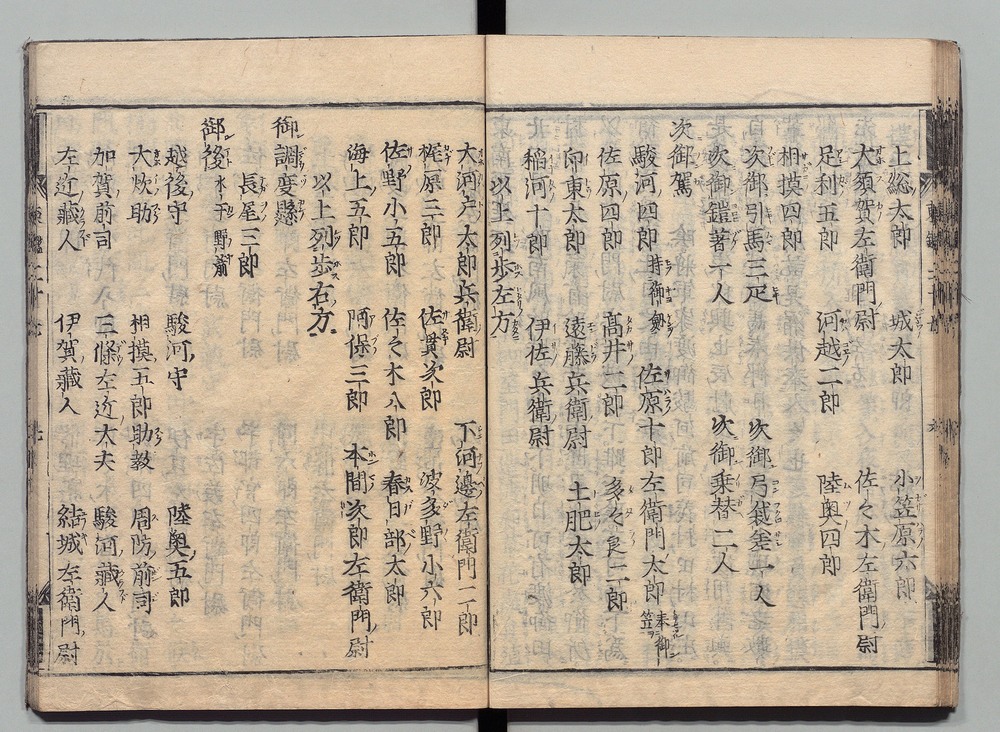 上総太郎　城太郎　小笠原六郎
大須賀左衛門尉　佐々木左衛門尉
足利五郎　河越二郎　陸奥四郎
相摸四郎
次御引馬三疋　次御弓袋差一人
次御鎧著一人　次御乗替二人
次御駕
駿河四郎持御剱　佐原十郎左衛門太郎奉御笠
佐原四郎　髙井二郎　多々良二郎
印東太郎　遠藤兵衛尉　土肥太郎
稲河十郎　伊佐兵衛尉
以上列歩左方
大河戸太郎兵衛尉　下河邊左衛門二郎
梶原三郎　佐貫次郎　波多野小六郎
佐野小五郎　佐々木八郎　春日部太郎
海上五郎　阿保三郎　本間次郎左衛門尉
以上列歩右方
御調度懸
長尾三郎
御後水干野箭
越後守　駿河守　陸奥五郎
大炊助　相摸五郎　助教　周防前司
加賀前司　三條左近大夫　駿河蔵人
左近蔵人　伊賀蔵人　結城左衛門尉